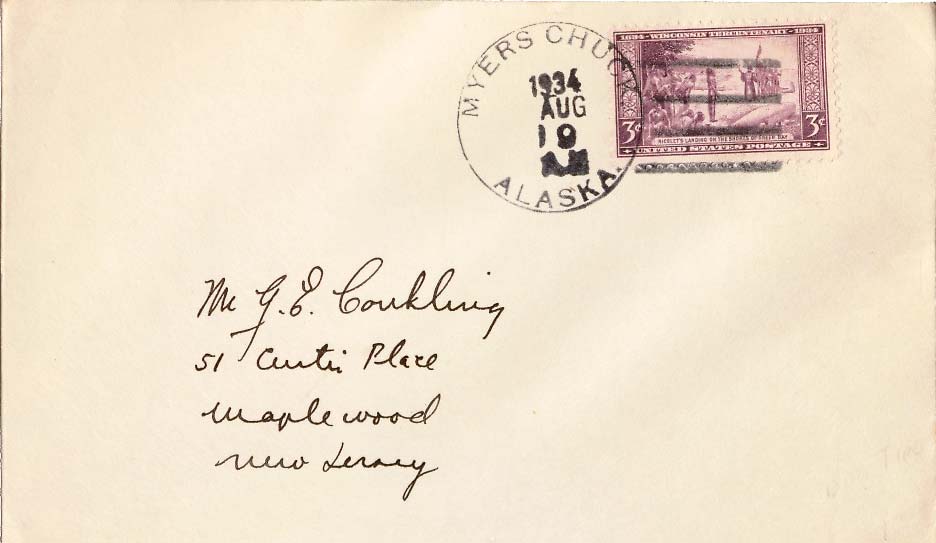 MYERS CHUCK
1934
AUG
19
ALASKA.
1634 - WISCONSIN TERCENTENARY - 1934
3¢ 3¢
NICOLET'S LANDING ON THE SHORES OF GREEN BAY
UNITED STATES POSTAGE
Mr G. E. Conkling
51 Curtis Place
Maplewood
New Jersey